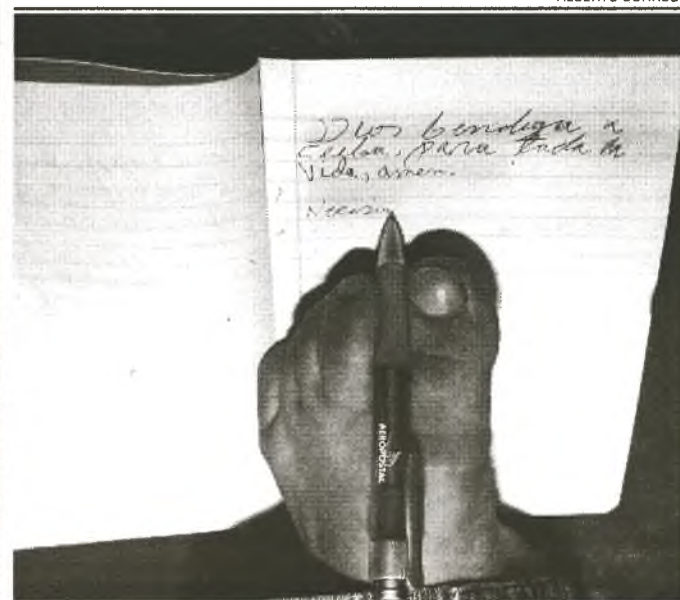 Dios bendiga a
para toda la
vida, amen.
AEROPOSTAL